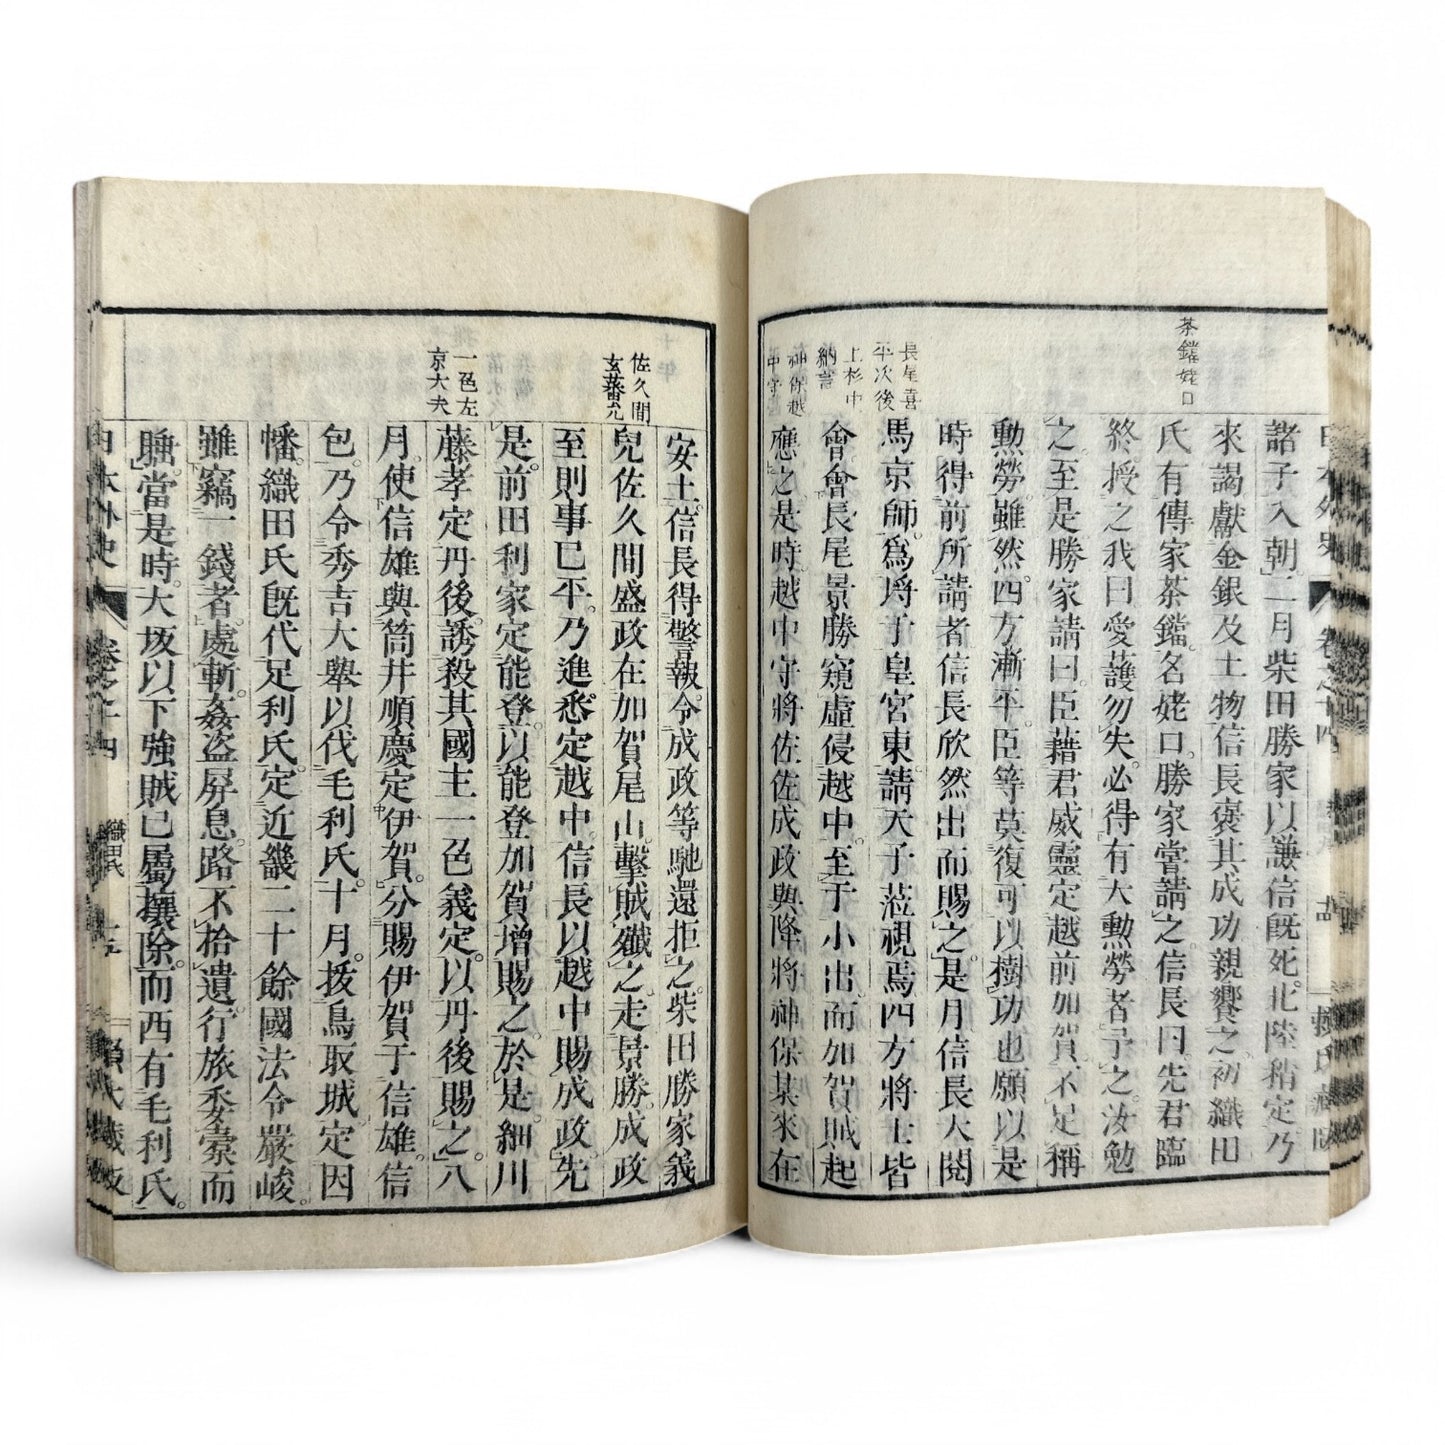 茶鐺姥口
長尾喜
平次後
上杉中
納言
神保越
中守
諸子入朝二月柴田勝家以謙信既死北陸稍定乃
來謁獻金銀及土物信長褒其成功親饗之初織田
氏有傳家茶鐺名姥口勝家嘗請之信長曰先君臨
終授之我曰愛護勿失必得有大勲勞者予之汝勉
之至是勝家請曰臣藉君威靈定越前加賀不足稱
勲勞雖然四方漸平臣等莫復可以樹功也願以是
時得前所請者信長欣然出而賜之是月信長大閲
馬京師爲埒于皇宮東請天子蒞視焉四方將士皆
會會長尾景勝窺虛侵越中至于小出而加賀賊起
應之是時越中守將佐佐成政與降將神保某來在
佐久間
玄蕃允
一色左
京大夫
安土信長得警報令成政等馳還拒之柴田勝家義
兒佐久間盛政在加賀尾山擊賊殲之走景勝成政
至則事已平乃進悉定越中信長以越中賜成政先
是前田利家定能登以能登加賀增賜之於是細川
藤孝定丹後誘殺其國主一色義定以丹後賜之八
月使信雄與筒井順慶定伊賀分賜伊賀于信雄信
包乃令秀吉大舉以代毛利氏十月拔鳥取城定因
幡織田氏既代足利氏定近畿二十餘國法令嚴峻
雖竊一錢者處斬姦盜屏息路不拾遺行旅委橐而
睡當是時大坂以下強賊已屬攘除而西有毛利氏
日本外史 卷之十四 織田氏 十五